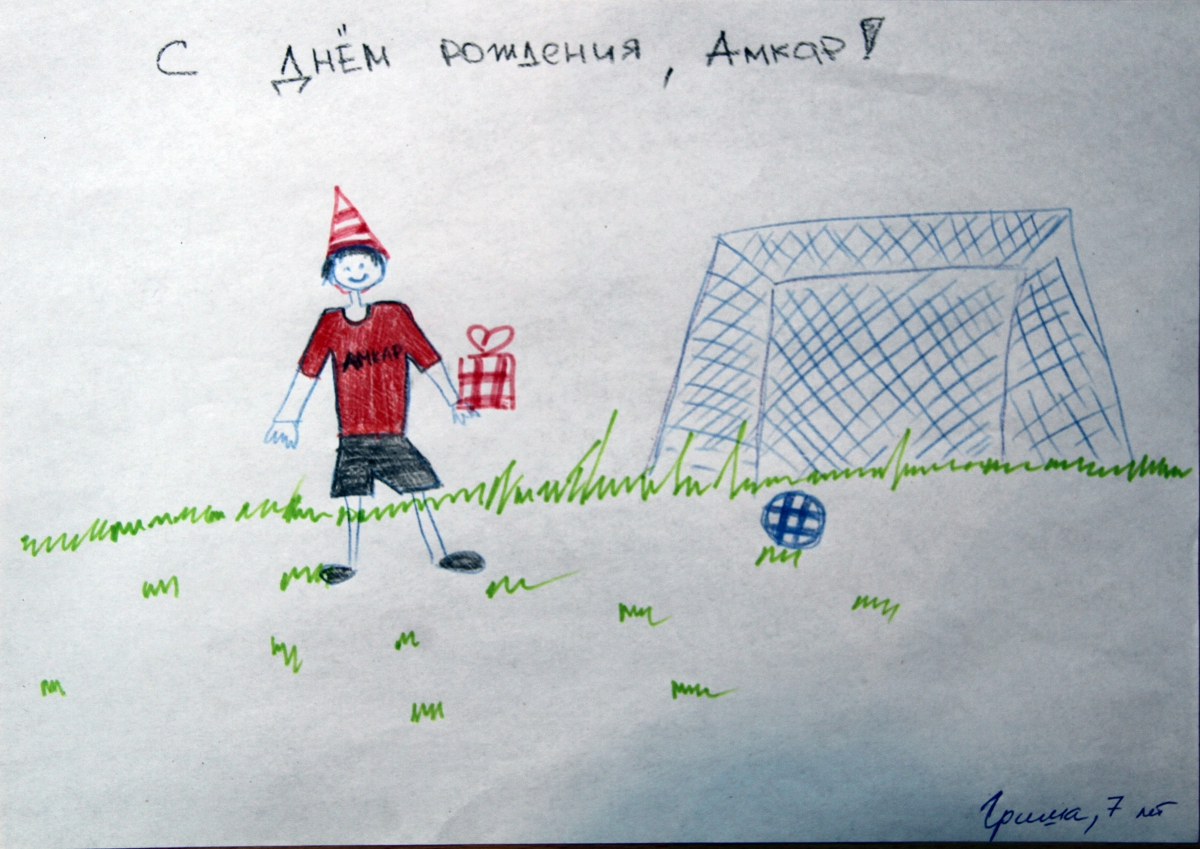 С ДНЁМ рождения, Амкар!
АМКАР
Гриша, 7 лет